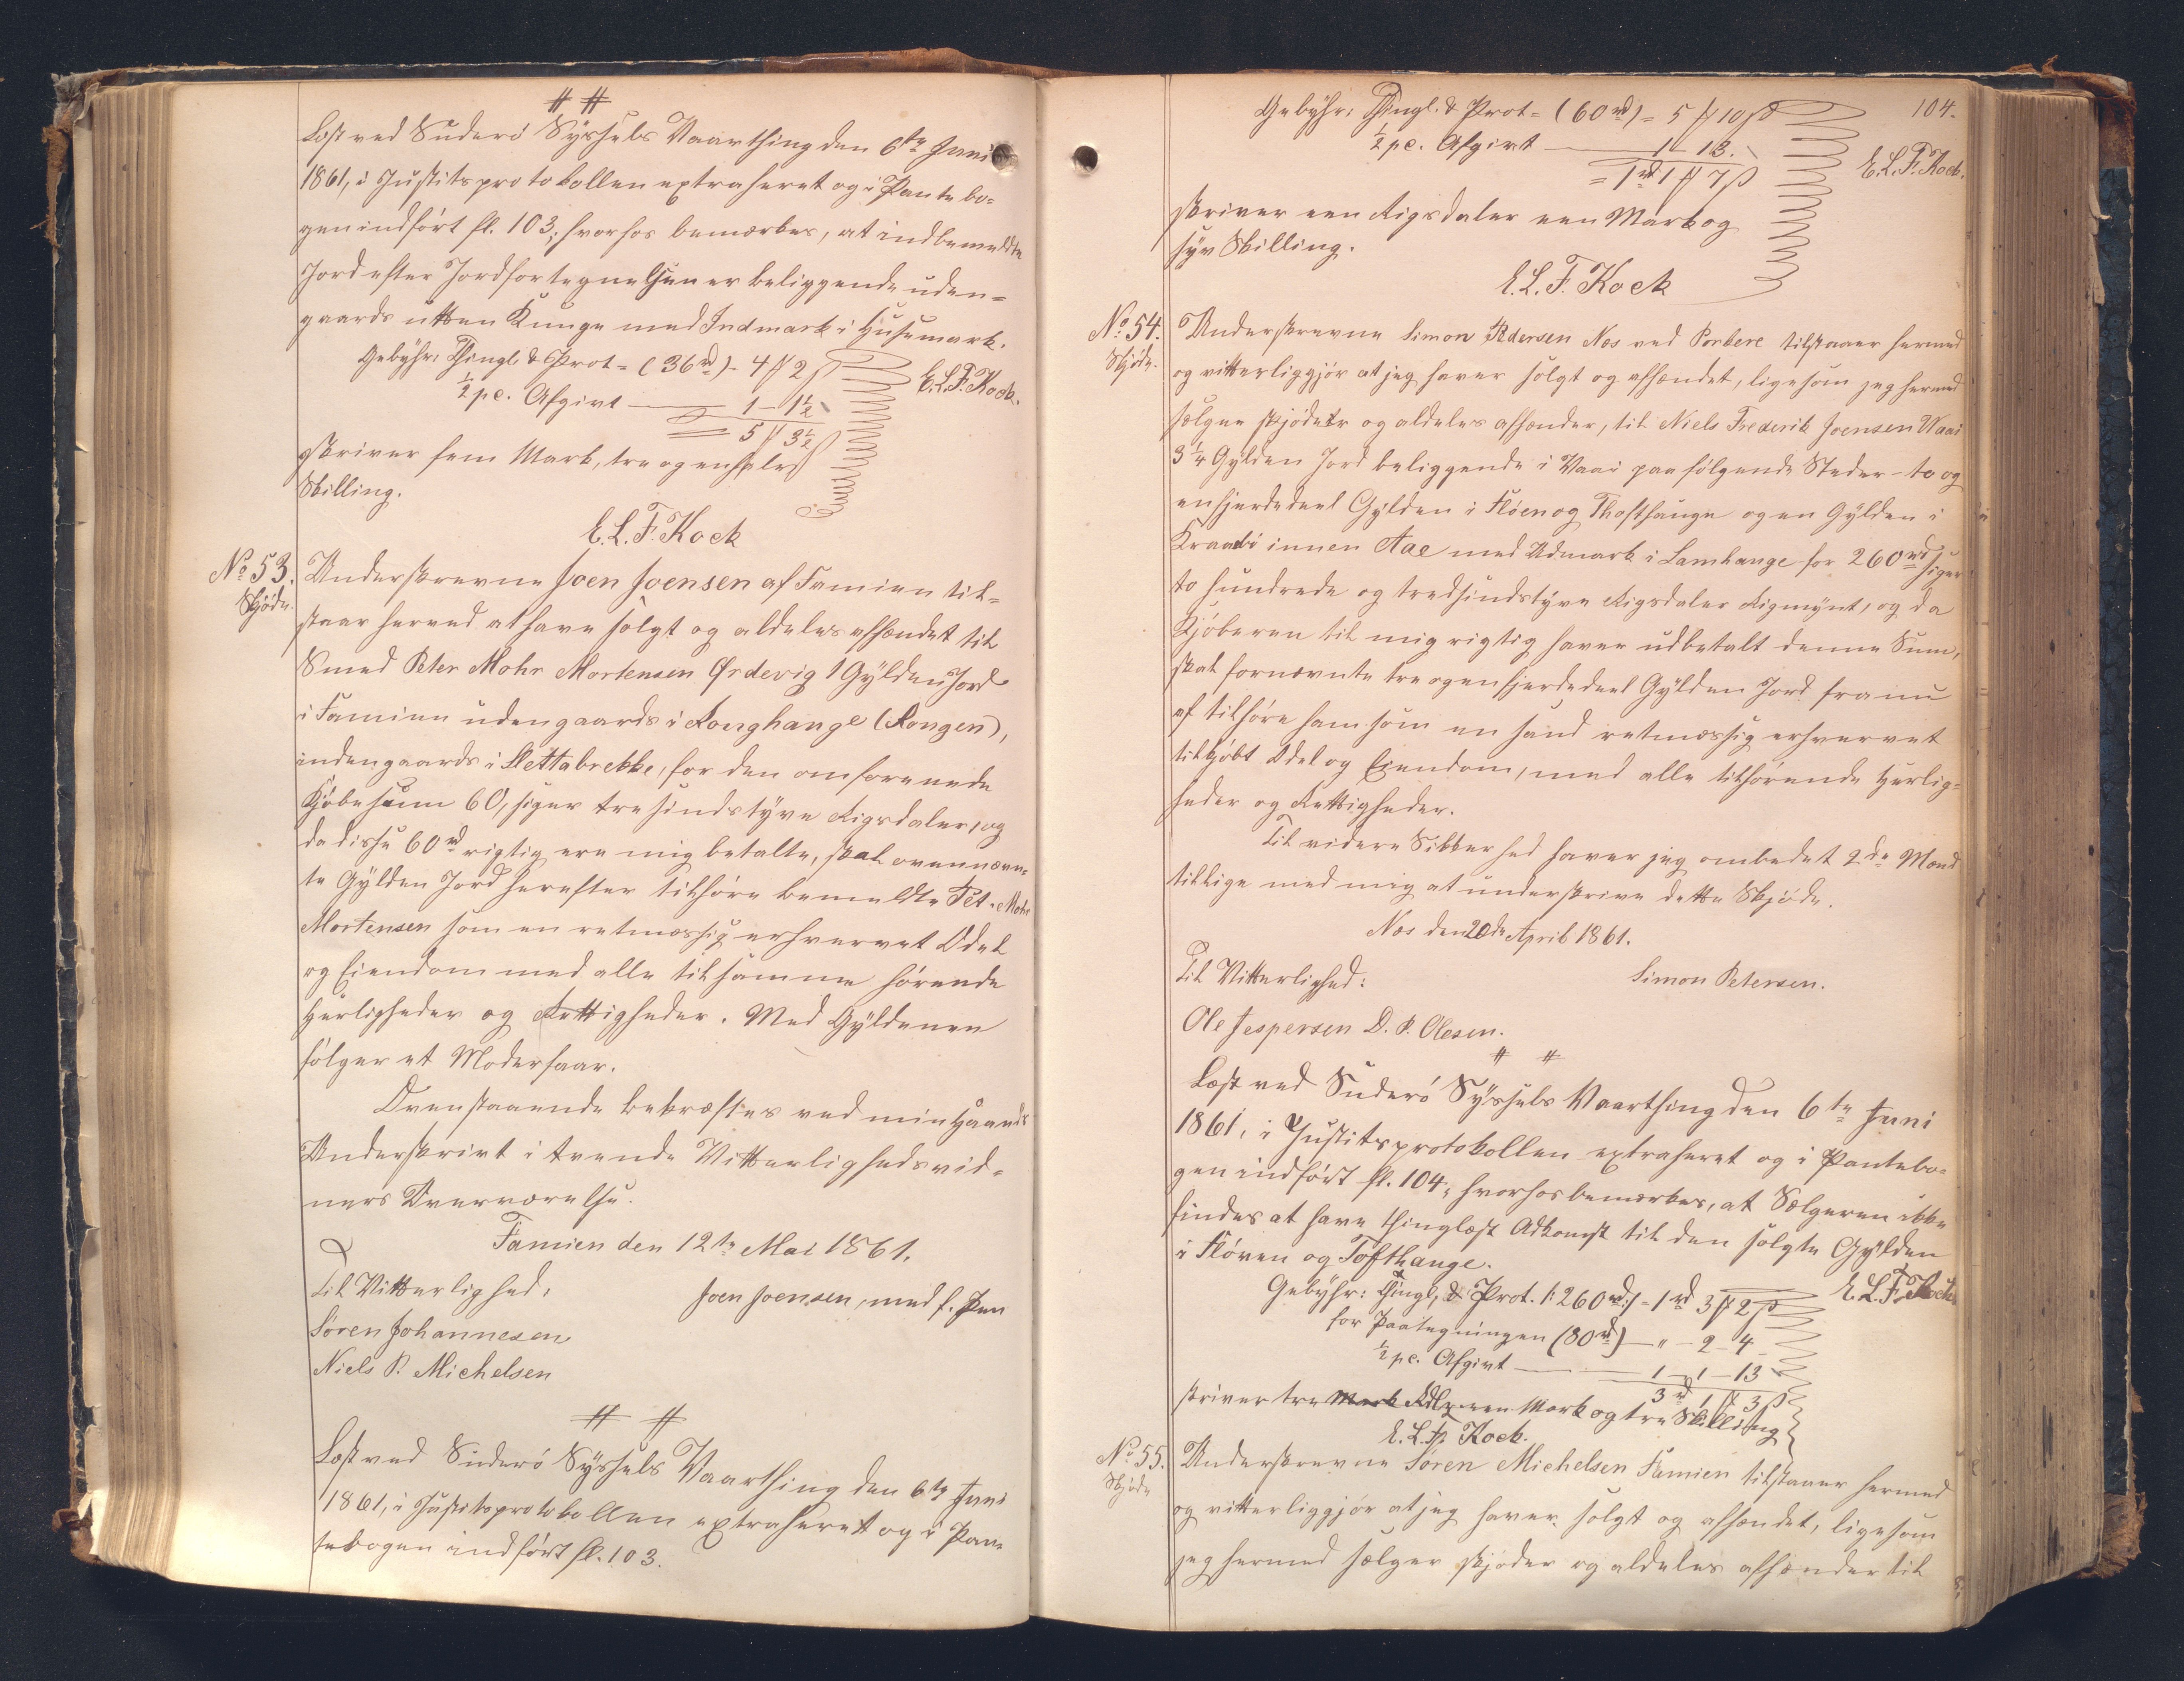 # #
Læst ved Suderö Syssels Vaarthing den 6te Juni
1861, i Justitsprotokollen extraheret og i Pantebo=
gen indført fl. 103; hvorhos bemærkes, at indbemeldte
Jord efter Jordfortegnelsen er beliggende uden=
gaards utten Kunge med Indmark i Husemark.
Gebyhr: Thingl. & Prot= (36rd) - 4 # 2 ß
½ pc. Afgivt — 1 - 1½
5 # 3½ ß
E.L.F. Kock.
skriver fem Mark, tre og en halv
Skilling.
E.L.F. Kock
No 53.
Skjöde.
Underskrevne Joen Joensen af Famien til=
staar herved at have solgt og aldeles afhændet til
Smed Peter Mohr Mortensen Ørdevig 1 Gylden Jord
i Famien udengaards i Ronghange (Rongen),
indengaards i Slettabrekke, for den omforenede
Kjöbesum 60, siger tresindstyve Rigsdaler, og
da disse 60rd rigtig ere mig betalte, skal ovennævn=
te Gylden Jord herefter tilhøre bemeldte Pet. Mohr
Mortensen som en retmæssig erhvervet Odel
og Eiendom med alle til samme hørende
Herligheder og Rettigheder. Med Gyldenen
følger et Moderfaar.
Ovenstaaende bekræftes ved min Haands
Underskrivt i tvende Vitterlighedsvid=
ners Overværelse.
Famien den 12te Mai 1861.
Til Vitterlighed,
Joen Joensen, med f. Pen
Sören Johannesen
Niels P. Michelsen
# #
Læst ved Suderö Syssels Vaarthing den 6te Juni
1861, i Justitsprotokollen extraheret og i Pan=
tebogen indført fl. 103.
104.
Gebyhr: Thingl. & Prot= (60rd) = 5 # 10 ß
½ pc. Afgivt — 1 - 13.
= 1rd 1 # 7 ß
E.L.F. Kock.
skriver een Rigsdaler een Mark og
syv Skilling.
E.L.F. Kock
No 54.
Skjöde.
Underskrevne Simon Pedersen Nes ved Porkere tilstaaer hermed
og vitterliggjör at jeg haver solgt og afhændet, ligesom jeg hermed
sælger skjöder og aldeles afhænder, til Niels Frederik Joensen Waai
3¼ Gylden Jord beliggende i Vaai paa følgende Steder - to og
en fjerdedeel Gylden i Flöen og Thofthauge og en Gylden i
innen Aae med Udmark i Lamhauge for 260rd siger
to hundrede og tredsindstyve Rigsdaler Rigmynt, og da
Kjöberen til mig rigtig haver udbetalt denne Sum,
skal fornævnte tre og en fjerdedeel Gylden Jord fra nu
af tilhøre ham som en sand retmæssig erhvervet
tilkjöbt Odel og Eiendom, med alle tilhørende Herlig=
heder og Rettigheder.
Til videre Sikkerhed haver jeg ombedet 2de Mænd
tillige med mig at underskrive dette Skjöde.
Nes den 20de April 1861.
Til Vitterlighed:
Simon Petersen.
Ole Jespersen D. P. Olesen.
# #
Læst ved Suderö Syssels Vaarthing den 6te Juni
1861, i Justitsprotokollen extraheret og i Pantebo=
gen indført fl. 104; hvorhos bemærkes, at Sælgeren ikke
findes at have thinglæst Adkomst til den solgte Gylden
i Flöven og Tofthange.
Gebyhr: Thingl, & Prot. /: 260rd:/ = 1rd 3 # 2 ß
E.L.F. Kock
for Paategningen (80rd) — " - 2 - 4
½ pc. Afgivt — 1 - 1 - 13
3rd 1 # 3 ß
skriver tre Mark Rdlr een Mark og tre Skilling
E.L.F. Kock.
No 55.
Skjöde
Underskrevne Sören Michelsen Famien tilstaaer hermed
og vitterliggjör at jeg haver solgt og afhændet, ligesom
jeg hermed sælger skjöder og aldeles afhænder til